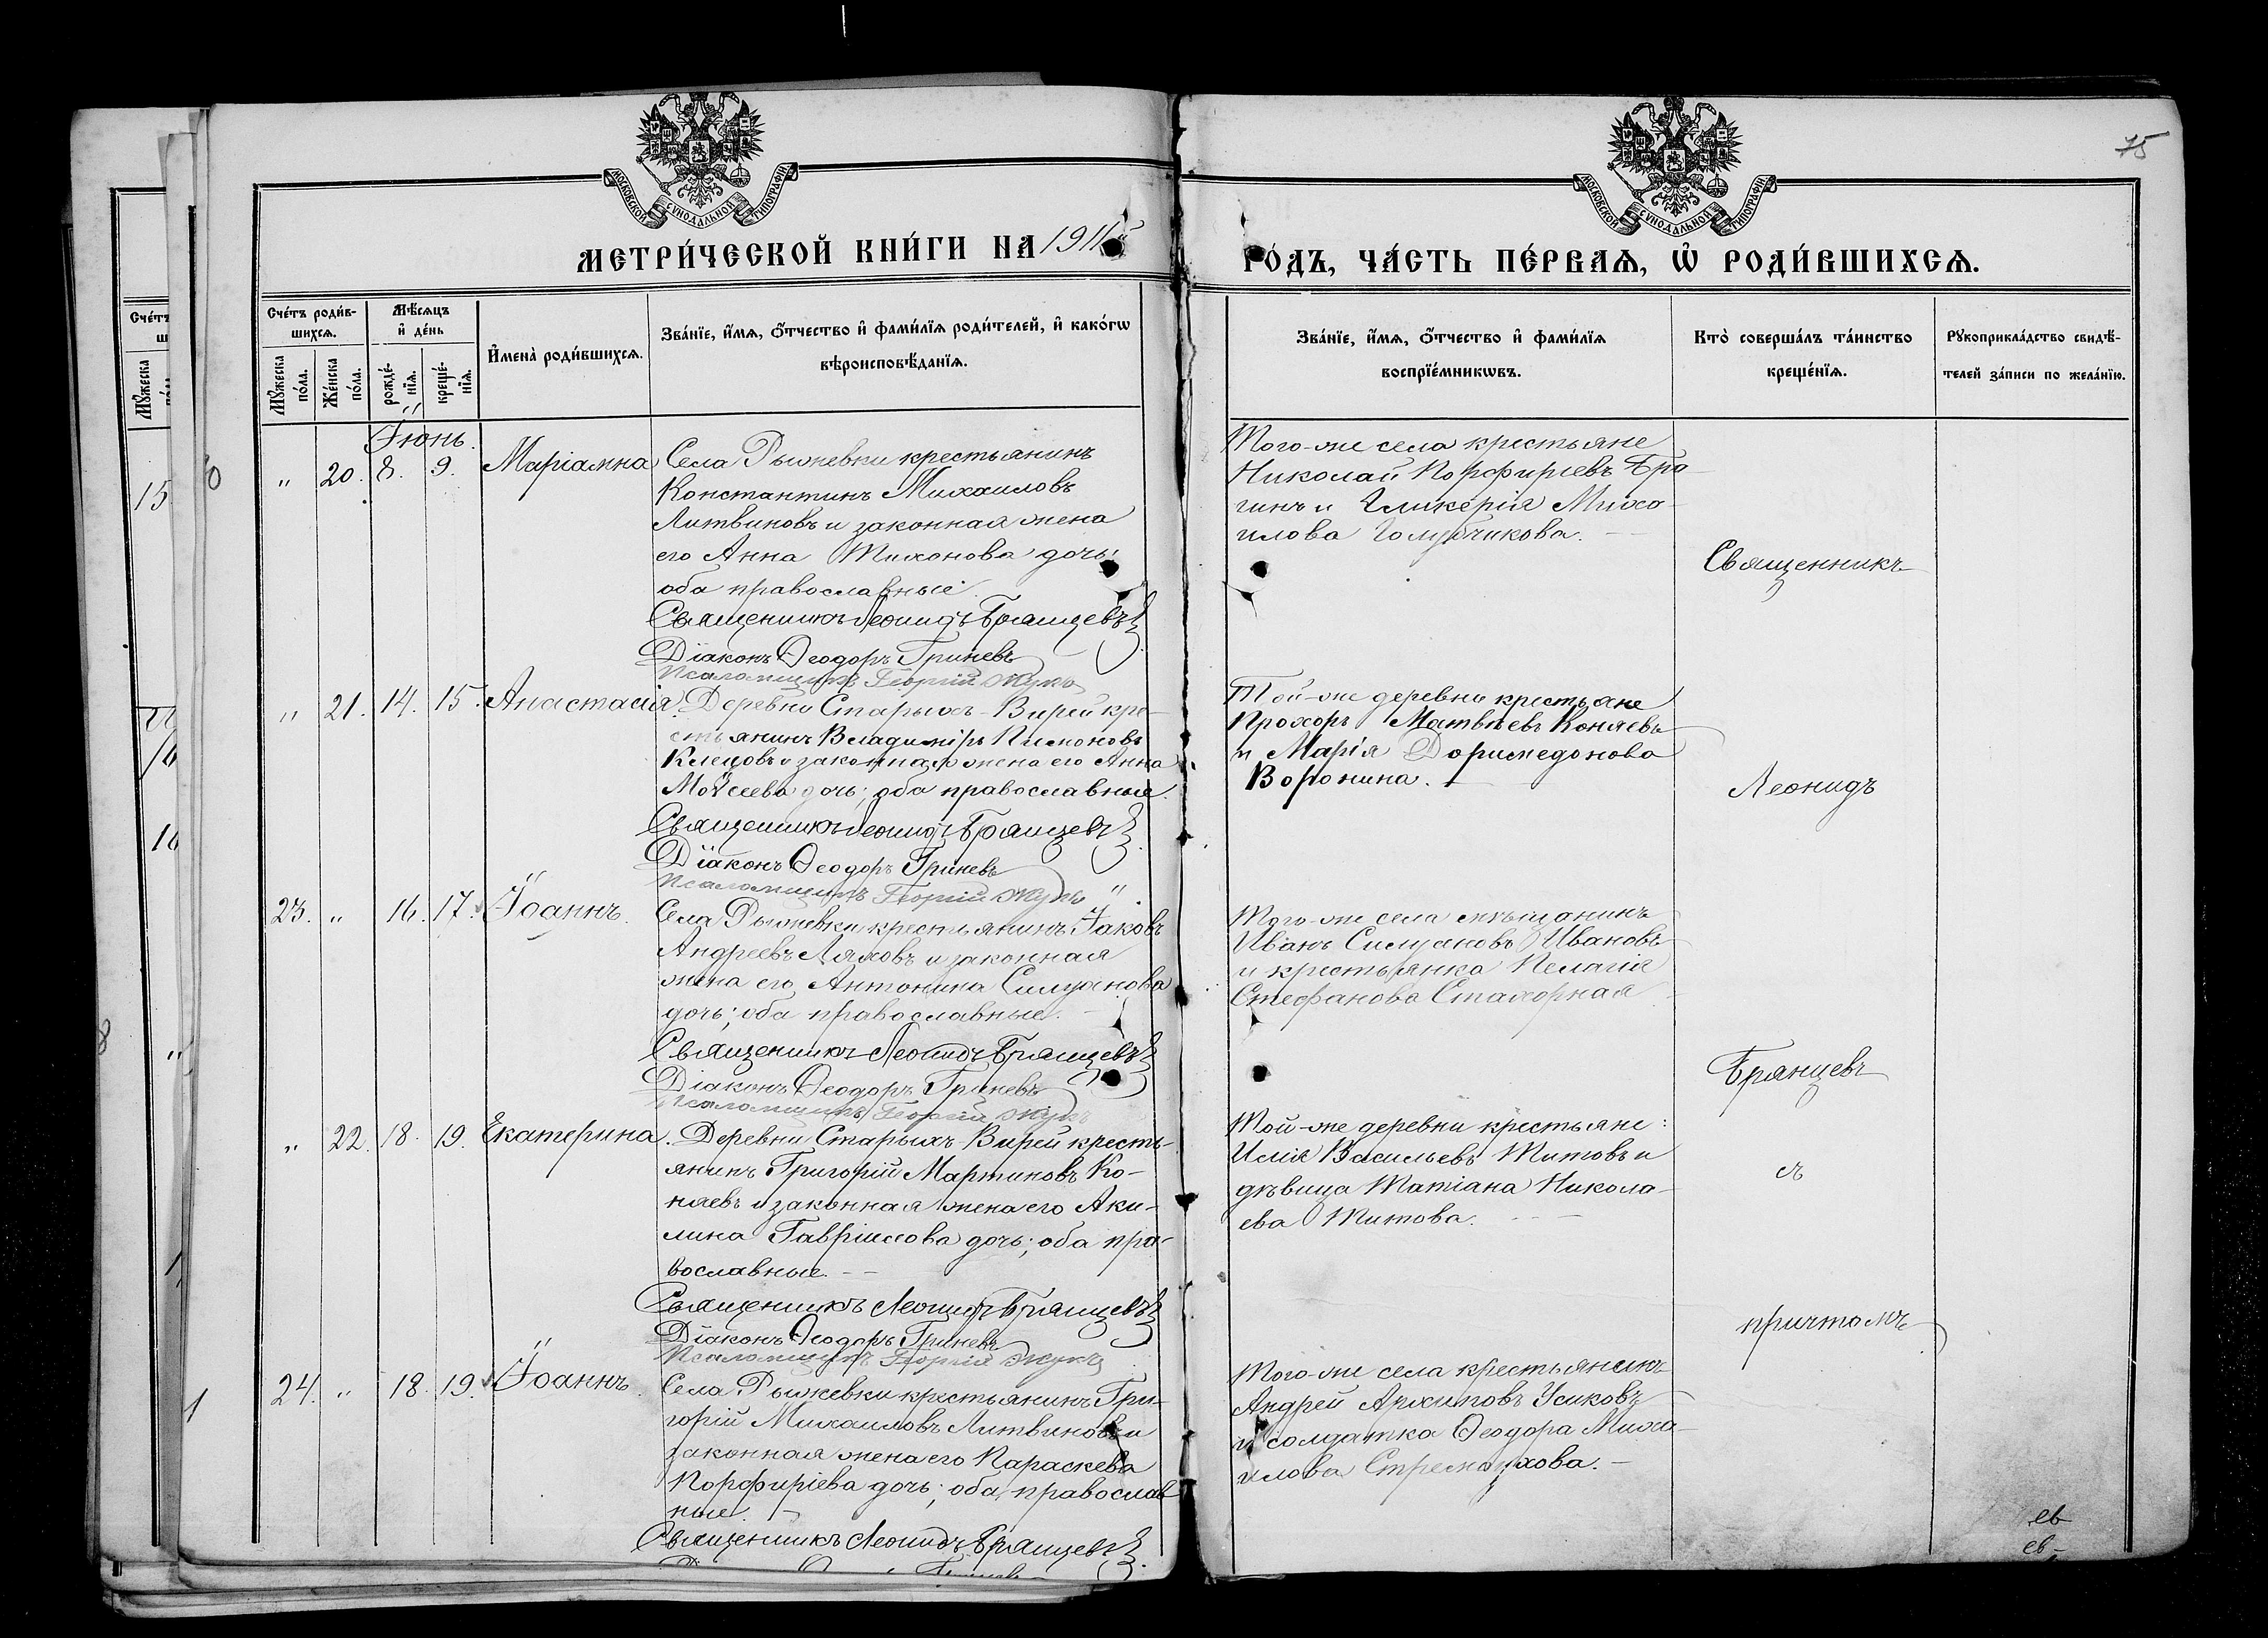 75
МОСКОВСКОЙ СУНОДАЛЬНОЙ ТИПОГРАФІИ
МОСКОВСКОЙ СУНОДАЛЬНОЙ ТИПОГРАФІИ
МЕТРИ́ЧЕСКОЙ КНИ́ГИ НА 1911й
ГО́ДЪ, ЧА́СТЬ ПЕ́РВАѦ, Ѡ҆ РОДИ́ВШИХСѦ.
Сче́тъ роди́в-
шихсѧ.
Мꙋ́жеска
по́ла.
Же́нска
по́ла.
Мѣ́сѧцъ
и҆ де́нь
рожде́-
нїѧ.
креще́-
нїѧ.
И҆мена̀ роди́вшихсѧ.
Зва́нїе, и҆́мѧ, ѻ҆́тчество и҆ фами́лїѧ роди́телей, и҆ како́гѡ
вѣроисповѣ́данїѧ.
Зва́нїе, и҆́мѧ, ѻ҆́тчество и҆ фами́лїѧ
воспрїе́мникѡвъ.
Кто̀ соверша́лъ та́инство
креще́нїѧ.
Рꙋкоприкла́дство свидѣ́-
телей за́писи по жела́нїю.
Іюнь.
„ 20. 8. 9. Маріамна
Села Рыжевки крестьянинъ
Константинъ Михаиловъ
Литвиновъ и законная жена
его Анна Тихонова дочь;
оба православные.
Священникъ Леонидъ Брянцевъ
Діаконъ Ѳеодоръ Гриневъ
Псаломщикъ Георгій Жукъ
Того-же села крестьяне
Николай Порфиріевъ Бра-
гинъ и Гликерія Миха-
илова Голубчикова.
Священникъ
„ 21. 14. 15. Анастасія.
Деревни Старыхъ-Вирей кре-
стьянинъ Владиміръ Пимоновъ
Клецовъ и законная жена его Анна
Моѵсеева дочь; оба православные.
Священникъ Леонидъ Брянцевъ
Діаконъ Ѳеодоръ Гриневъ
Псаломщикъ Георгій Жукъ
Той-же деревни крестьяне
Прохоръ Матвѣевъ Коняевъ
и Марія Доримедонова
Воронина.
Леонидъ
23. „ 16. 17. Іоаннъ.
Села Рыжевки крестьянинъ Іаковъ
Андреевъ Ляховъ и законная
жена его Антонина Силуанова
дочь; оба православные.
Священникъ Леонидъ Брянцевъ
Діаконъ Ѳеодоръ Гриневъ
Псаломщикъ Георгій Жукъ
Того-же села мѣщанинъ
Иванъ Силуановъ Ивановъ
и крестьянка Пелагія
Стефанова Стахорная
Брянцевъ
„ 22. 18. 19. Екатерина.
Деревни Старыхъ-Вирей кресть-
янинъ Григорій Мартиновъ Ко-
няевъ и законная жена его Аки-
лина Гавріилова дочь; оба пра-
вославные.
Священникъ Леонидъ Брянцевъ
Діаконъ Ѳеодоръ Гриневъ
Псаломщикъ Георгій Жукъ
Той-же деревни крестьяне:
Илія Васильевъ Титовъ и
дѣвица Татіана Никола-
ева Титова.
съ
причтомъ
24. „ 18. 19. Іоаннъ.
Села Рыжевки крестьянинъ Гри-
горій Михаиловъ Литвиновъ и
законная жена его Параскева
Порфиріева дочь; оба православ
ные.
Священникъ Леонидъ Брянцевъ
Того-же села крестьянинъ
Андрей Архиповъ Усиковъ
и солдатка Ѳеодора Миха-
илова Стремоухова.
ев
ев-